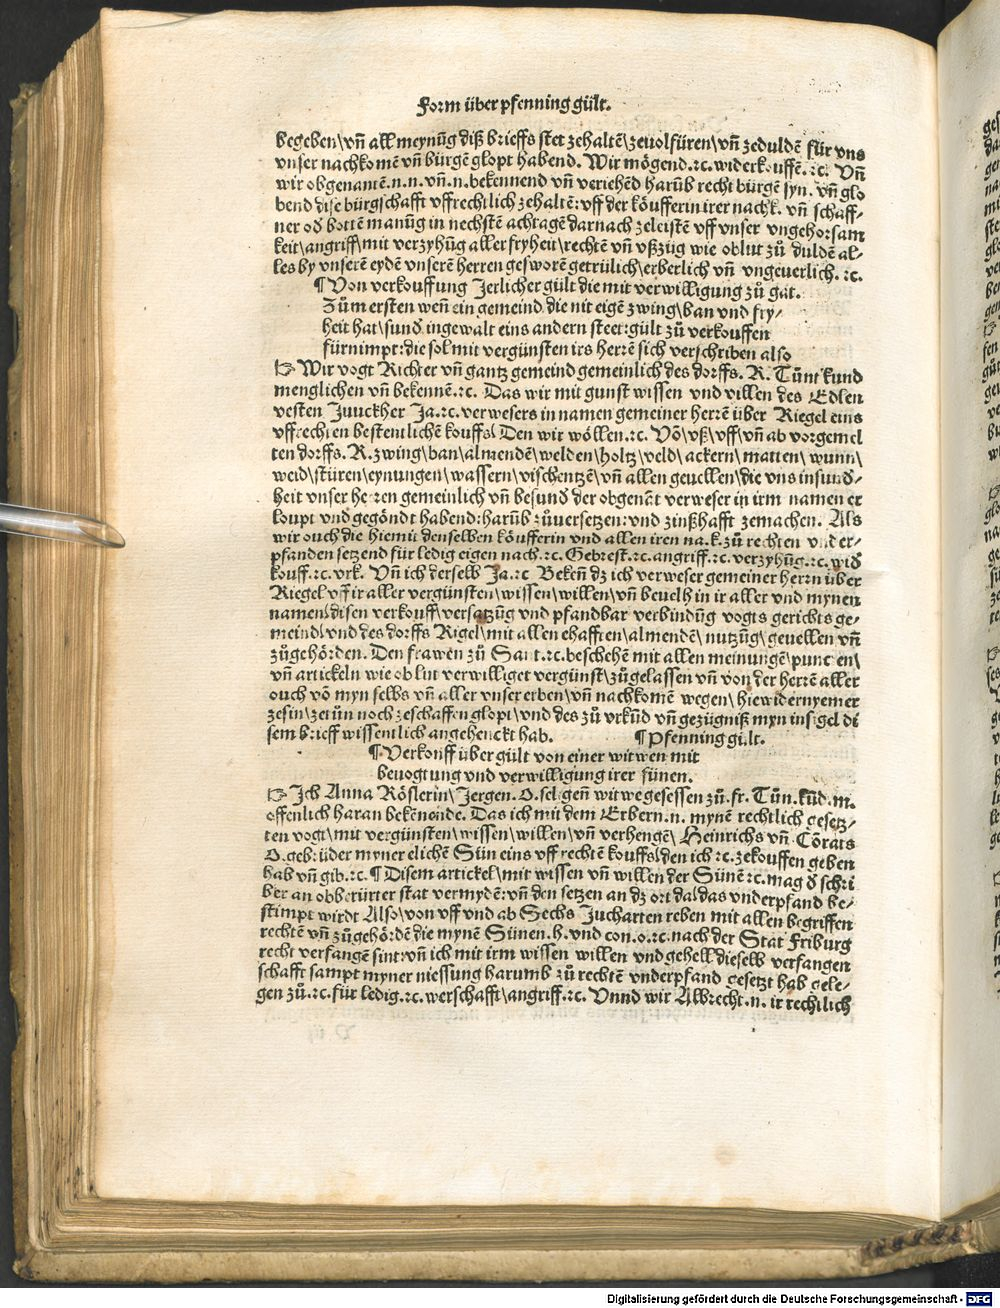 Form über pfenning gült.
begeben\vn̄ all meynūg diß brieffs stet zehaltē\zeuolfüren\vn̄ zeduldē für vns
vnser nachkomē vn̄ bürgē glopt habend. Wir mögend.ꝛc. widerkouffē.ꝛc. Vn̄
wir obgenantē.n.n.vn̄.n.bekennend vn̄ veriehēd harūb recht bürgē syn. vn̄ glo
bend dise bürgschafft vffrechtlich zehaltē: vff der köufferin irer nachk. vn̄ schaff⸗
ner oď bottē manūg in nechstē achtagē darnach zeleistē vff vnser vngehorsam
keit\angriff\mit verzyhūg aller fryheit\rechtē vn̄ vßzüg wie oblut zů duldē al⸗
les by vnserē eydē vnserē herren gesworē getrülich\erberlich vn̄ vngeuerlich.ꝛc.
¶ Von verkouffung Jerlicher gült die mit verwilligung zů gat.
Zům ersten wen̄ ein gemeind die nit eigē zwing\ban vnd fry⸗
heit hat\sund in gewalt eins andern steet: gült zů verkouffen
fürnimpt: die sol mit vergünsten irs herrē sich verschriben also
☞ Wir vogt Richter vn̄ gantz gemeind gemeinlich des dorffs. R. Tūnt kund
menglichen vn̄ bekennē.ꝛc. Das wir mit gunst wissen vnd willen des Edlen
vesten Junckher Ja.ꝛc. verwesers in namen gemeiner herrē über Riegel eins
vffrechten bestentlichē kouffs\ Den wir wöllen.ꝛc. Vō\vß\vff\vn̄ ab vorgemel
ten dorffs. R. zwing\ban\almendē\welden\holtz\veld\ackern\matten\wunn\
weid\stüren\eynungen\wassern\vischentzē\vn̄ allen geuellen\die vns in sunď⸗
heit vnser herren gemeinlich vn̄ besund der obgenāt verweser in irm namen er
loupt vnd gegöndt habend: harūb zůuersetzen: vnd zinßhafft zemachen. Als
wir ouch die hiemit denselben köufferin vnd allen iren na.k. zů rechten vnder⸗
pfanden setzend für ledig eigen nach.ꝛc. Gebrest.ꝛc. angriff.ꝛc. verzyhūg.ꝛc. wiď
kouff.ꝛc. vrk. Vn̄ ich derselb Ja.ꝛc Beken̄ dz ich verweser gemeiner herrn über
Riegel vff ir aller vergünsten\wissen\willen\vn̄ beuelh in ir aller vnd mynen
namen\disen verkouff\versatzūg vnd pfandbar verbindūg vogts gerichts ge⸗
meind\vnd des dorffs Rigel\mit allen ehafften\almendē\nutzūg\geuellen vn̄
zůgehörden. Den frawen zů Sant.ꝛc. beschehē mit allen meinungē\puncten\
vn̄ artickeln wie oblut verwilliget vergünst\zůgelassen vn̄ von der herrē aller
ouch vō myn selbs vn̄ aller vnser erben\vn̄ nachkomē wegen\hiewider nyemer
zesin\zetůn noch zeschaffen glopt\vnd des zů vrkūd vn̄ gezügniß myn insigel di
sem brieff wissentlich angehenckt hab. ¶ Pfenning gült.
¶ Verkouff über gült von einer witwen mit
beuogtung vnd verwilligung irer sünen.
☞ Ich Anna Röslerin\Jergen. O. seligen̄ witwe gesessen zů. fr. Tůn. kūd. m.
offenlich haran bekēnende. Das ich mit dem Erbern.n. mynē rechtlich gesetz⸗
ten vogt\mit vergünsten\wissen\willen\vn̄ verhengē\ Heinrichs vn̄ Cōrats
O. geb: über myner elichē Sün eins vffrechtē kouffs\den ich ꝛc. zekouffen geben
hab vn̄ gib.ꝛc. ¶ Disem artickel\mit wissen vn̄ willen der Sünē ꝛc. mag ď schri
ber an obberürter stat vermydē: vn̄ den setzen an dz ort da\das vnderpfand be⸗
stimpt wirdt Also\von vff vnd ab Sechs Jucharten reben mit allen begriffen
rechtē vn̄ zůgehördē die mynē Sünen.h. vnd con.o.ꝛc. nach der Stat Friburg
recht verfangē sint: vn̄ ich mit irm wissen willen vnd gehell dieselb verfangen
schafft sampt myner niessung harumb zů rechtē vnderpfand gesetzt hab gele⸗
gen zů.ꝛc. für ledig.ꝛc. werschafft\angriff.ꝛc. Vnnd wir Albrecht.n. ir rechtlich
Digitalisierung gefördert durch die Deutsche Forschungsgemeinschaft - DFG